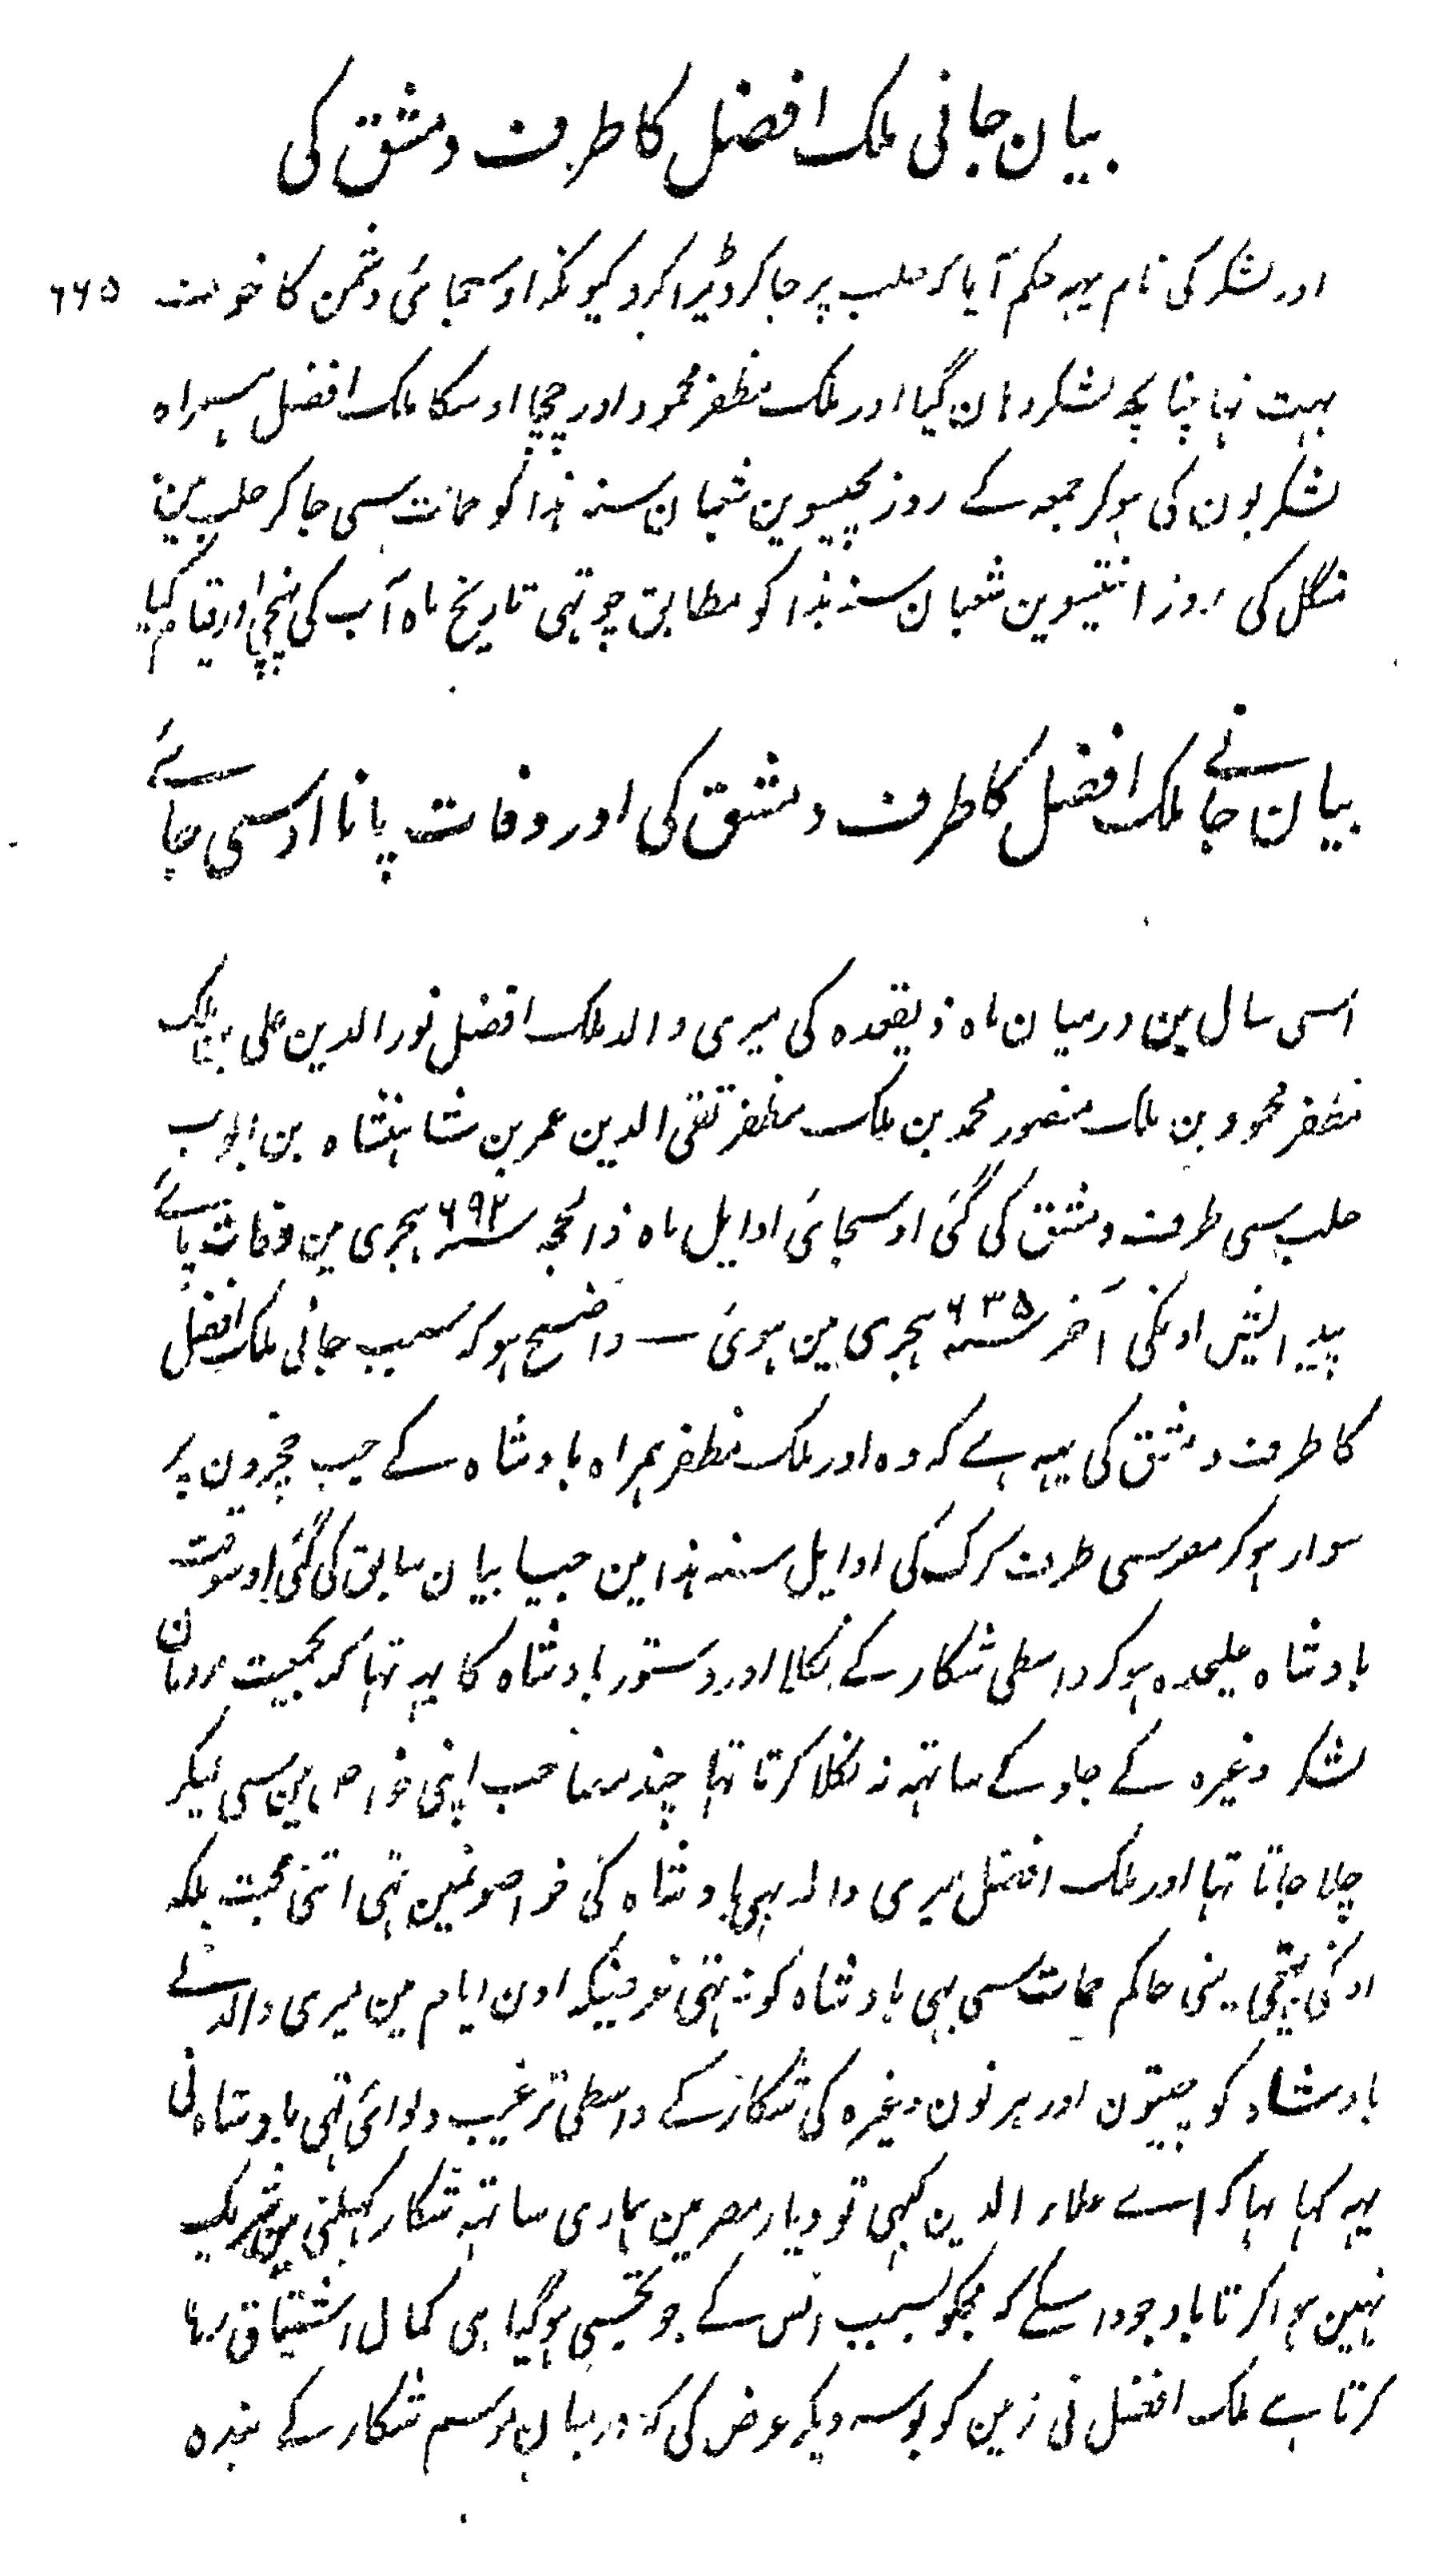 بیان جانی ملک افضل کا طرف دمشق کی
اور لشکر کی نام یہہ حکم آیا کہ حلب پر جا کر ڈیرا کرو کیونکہ اوسجائی دشمن کا خوف ۶۶۵
بہت تہا چنانچہ لشکر وہان گیا اور ملک مظفر محمود اور چچا اوسکا ملک افضل ہمراہ
لشکریون کی ہوکر جمعہ کے روز پچیسوین شعبان سنہ ہذا کو حمات سی جا کر حلب مین
منگل کی روز انتیسوین شعبان سنہ ہذا کو مطابق چوتہی تاریخ ماہ آب کی پہنچی اور قیام کیا
بیان جانے ملک افضل کا طرف دمشق کی اور وفات پانا اوسی جائے
اسی سال مین درمیان ماہ ذیقعدہ کی میری والد ملک افضل نور الدین علی بن ملک
مظفر محمود بن ملک منصور محمد بن ملک مظفر تقی الدین عمر بن شاہنشاہ بن ایوب
حلب سی طرف دمشق کی گئی اوسجائی اوایل ماہ ذالحجہ سنہ ۶۹۲ ہجری مین وفات پائے
پیدایش اونکی آخر سنہ ۶۳۵ ہجری مین ہوئی — واضح ہو کہ سبب جانی ملک افضل
کا طرف دمشق کی یہہ ہے کہ وہ اور ملک مظفر ہمراہ بادشاہ کے جب خچرون پر
سوار ہوکر مصر سی طرف کرک کی اوایل سنہ ہذا مین جیسا بیان سابق کی گئی اوسوقت
بادشاہ علیحدہ ہوکر واسطی شکار کے نکلا اور دستور بادشاہ کا یہہ تہا کہ بجمعیت مردمان
لشکر وغیرہ کے جاو کے ساتہہ نہ نکلا کرتا تہا چند مصاحب اپنی خواص مین سی لیکر
چلا جاتا تہا اور ملک افضل میری والد بہی بادشاہ کی خواصونمین تہی اتنی محبت بلکہ
اونکی بہتیجی یعنی حاکم حمات سی بہی بادشاہ کو نہ تہی غرضیکہ اون ایام مین میری والد نے
بادشاہ کو چیتون اور ہرنون وغیرہ کی شکار کے واسطی ترغیب دلوائی تہی بادشاہ نی
یہہ کہا تہا کہ اے علاء الدین کبہی تو دیار مصر مین ہماری ساتہہ شکار کہیلنی مین شریک
نہین ہوا کرتا باوجود اسکے کہ مجکو بسبب انس کے جو تجہسی ہوگیا ہی کمال اشتیاق رہا
کرتا ہے ملک افضل نی زمین کو بوسہ دیکر عرض کی کہ درمیان موسم شکار کے بندہ